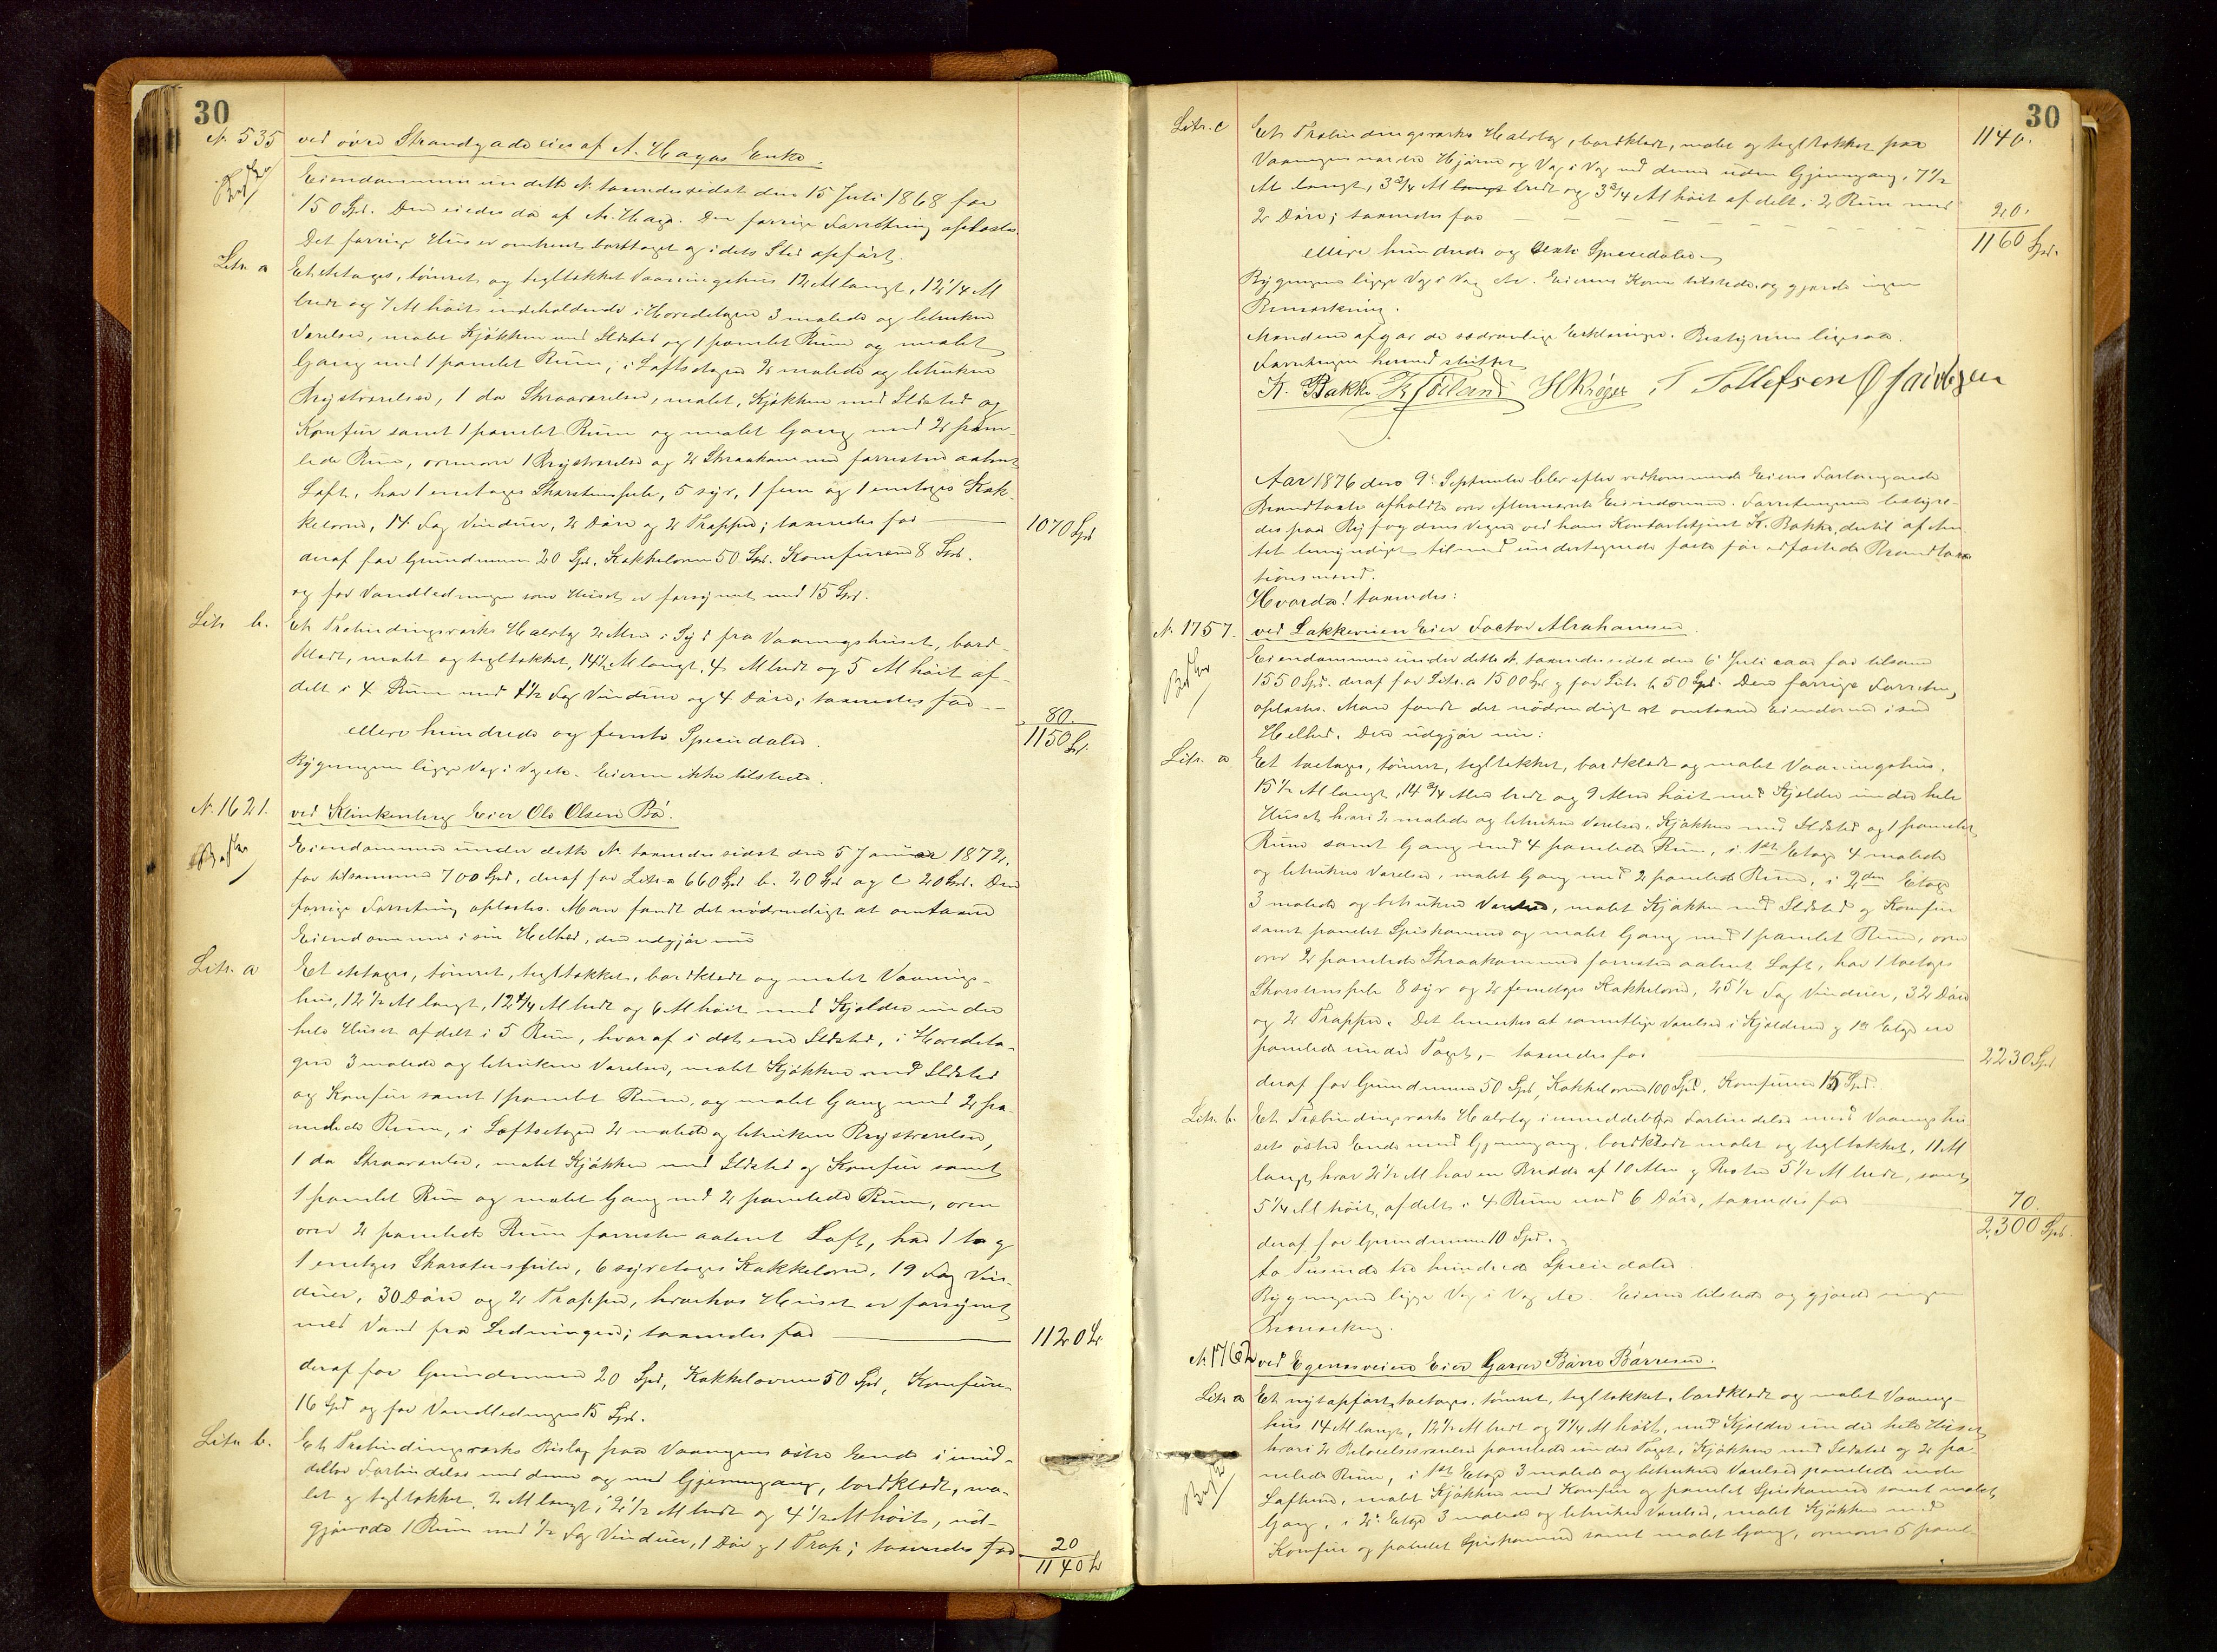 30
N. 535 ved övre Strandgade eies af A. Hagas Enke.
Eiendommen under dette N. taxeredes sidst den 15 Juli 1868 for
150 Spd. Den eiedes da af A. Haga. Den forrige Forretning oplæstes.
Det forrige Huus er omtrent borttaget og i dets Sted opført.
Litr. a Et etetages, tömret og tegltækket Vaaningshuus 12 Al langt, 12 1/4 Al
bredt og 7 Al höit indeholdende i Hovedetagen 3 malede og betrukne
Værelser, malet Kjökken med Ildsted og 1 panelet Rum og malet
Gang med 1 panelet Rum, i Loftsetagen 2 malede og betrukne
Kvistværelser, 1 do Skraaværelse, malet Kjökken med Ildsted og
Komfur samt 1 panelet Rum og malet Gang med 2 pane-
lede Rum, ovenover 1 Kvistværelse og 2 Skraakamre forresten aabent
Loft, har 1 enetages Skorstenspibe, 5 syv, 1 fem og 1 enetages Kak-
kelovne, 14 Fag Vinduer, 2 Döre og 2 Trapper; taxeredes for — 1070 Spd
deraf for Grundmuren 20 Spd. Kakkelovne 50 Spd. Komfuren 8 Spd.
og for Vandledningen som Huset er forsynet med 15 Spd.
Litr b. Et Træbindingsværks Halvtag 2 Alen i Syd fra Vaaningshuset, bord-
klædt, malet og tegltækket, 14 1/2 Al langt, 4 Al bredt og 5 Al höit af-
delt i 4 Rum med 1 1/2 Fag Vinduer og 4 Döre; taxeredes for — 80.
elleve hundrede og femti Speciedaler. 1150 Spd.
Bygningen ligger Væg i Væg etc. Eieren ikke tilstede.
N. 1621. ved Klinkenberg Eier Ole Olsen Bö.
Eiendommen under dette N. taxeredes sidst den 5 Januar 1872.
for tilsammen 700 Spd, deraf for Litr. a 660 Spd b. 20 Spd og c 20 Spd. Den
forrige Forretning oplæstes. Man fandt det nödvendigt at omtaxere
Eiendommen i sin Helhed, den udgjör nu
Litr. a Et etetages, tömret, tegltækket, bordklædt og malet Vaanings-
huus, 12 1/2 Al langt, 12 1/4 Al bredt og 6 Al höit med Kjelder under
hele Huset afdelt i 5 Rum, hvoraf i det ene Ildsted, i Hovedeta-
gen 3 malede og betrukne Værelser, malet Kjökken med Ildsted
og Komfur samt 1 panelet Rum, og malet Gang med 2 pa-
nelede Rum, i Loftsetagen 2 malede og betrukne Kvistværelser,
1 do Skraaværelse, malet Kjökken med Ildsted og Komfur samt
1 panelet Rum og malet Gang med 2 panelede Rum, oven
over 2 panelede Rum forresten aabent Loft, har 1 to og
1 enetages Skorstenspiber, 6 syvetages Kakkelovne, 19 Fag Vin-
duer, 30 Döre og 2 Trapper, hvorhos Huset er forsynet
med Vand fra Ledningen; taxeredes for — 1120 Spd
deraf for Grundmuren 20 Spd, Kakkelovne 50 Spd, Komfure
16 Spd og for Vandledningen 15 Spd.
Litr b. Et Træbindingsværks Bislag paa Vaaningens östre Ende i umid-
delbar Forbindelse med denne og med Gjennemgang, bordklædt, ma-
let og tegltækket, 2 Al langt, 2 1/2 Al bredt og 4 1/2 Al höit, ud-
gjörende 1 Rum med 1/2 Fag Vinduer, 1 Dör og 1 Trap; taxeredes for 20
1140 Spd
30
Litr. c Et Træbindingsværks Halvtag, bordklædt, malet og tegltækket paa 1140.
Vaaningens nordre Hjörne og Væg i Væg med denne uden Gjennemgang, 7 1/2
Al langt, 3 3/4 Al langt bredt og 3 3/4 Al höit afdelt i 2 Rum med
2 Döre; taxeredes for — 20.
elleve hundrede og sexti Speciedaler 1160 Spd.
Bygningen ligger Væg i Væg etc. Eieren kom tilstede og gjorde ingen
Bemærkning.
Mændene afgav de sædvanlige Erklæringer. Bestyreren ligesaa.
Forretningen hermed sluttet
K. Bakke H Kröger T Tollefsen
Aar 1876 den 9. September blev efter vedkommende Eieres Forlangende
Brandtaxt afholdt over efternævnte Eiendomme. Forretningen bestyre-
des paa Byfogdens Vegne ved hans Kontorbetjent K. Bakke, dertil af Am-
tet bemyndiget tilmed undertegnede faste för edfæstede Brandtaxa-
tionsmænd.
Hvorda! taxeredes:
N. 1757. ved Lakkeveien Eier Factor Abrahamsen.
Eiendommen under dette N. taxeredes sidst den 6 Juli for tilsam
1550 Spd. deraf for Litr. a 1500 Spd og for Litr b 50 Spd. Den forrige Forretning
oplæstes. Man fandt det nödvendigt at omtaxere Eiendommen i sin
Helhed. Den udgjör nu:
Litr. a Et toetages, tömret, tegltækket, bordklædt og malet Vaaningshuus,
15 1/2 Al langt, 14 3/4 Alen bredt og 9 Alen höit med Kjelder under hele
Huset hvori 2 malede og betrukne Værelser, Kjökken med Ildsted og 1 panelet
Rum samt Gang med 4 panelede Rum, i 1ste Etage 4 malede
og betrukne Værelser, malet Gang med 2 panelede Rum, i 2den Etage
3 malede og betrukne Værelser, malet Kjökken med Ildsted og Komfur
samt panelet Spiskammer og malet Gang med 1 panelet Rum, oven
over 2 panelede Skraakamre forresten aabent Loft, har 1 toetages
Skorstenspibe 8 syv og 2 femetages Kakkelovne, 25 1/2 Fag Vinduer, 32 Döre
og 2 Trapper. Det bemærkes at samtlige Værelser i Kjelderen og 1ste Etage ere
panelede under Taget, — taxeredes for 2230 Spd
deraf for Grundmuren 50 Spd, Kakkelovne 100 Spd. Komfuren 15 Spd.
Litr. b. Et Træbindingsværks Halvtag i umiddelbar Forbindelse med Vaaningshu-
sets östre Ende med Gjennemgang, bordklædt malet og tegltækket, 11 Al
langt, hvor 2 1/2 Al har en Bredde af 10 Alen og Resten 5 1/2 Al bredt, samt
5 1/4 Al höit, afdelt i 4 Rum med 6 Döre, taxeredes for 70.
deraf for Grundmuren 10 Spd. 2300 Spd.
to Tusinde tre hundrede Speciedaler
Bygningen ligger Væg i Væg etc. Eieren tilstede og gjorde ingen
Bemærkning.
N. 1762 ved Egenesveien Eier Garver Börre Börresen.
Litr a Et nyt opfört, toetages, tömret, tegltækket, bordklædt og malet Vaanings-
huus 14 Al langt, 12 1/2 Al bredt og 9 1/4 Al höit, med Kjelder under hele Huset
hvori 2 Beboelsesværelser panelede under Taget, Kjökken med Ildsted og 2 pa-
nelede Rum, i 1ste Etage 3 malede og betrukne Værelser panelede under
Loftene, malet Kjökken med Komfur og panelet Spiskammer samt malet
Gang, i 2. Etage 3 malede og betrukne Værelser, malet Kjökken med
Komfur og panelet Spiskammer samt malet Gang, ovenover 5 panel-